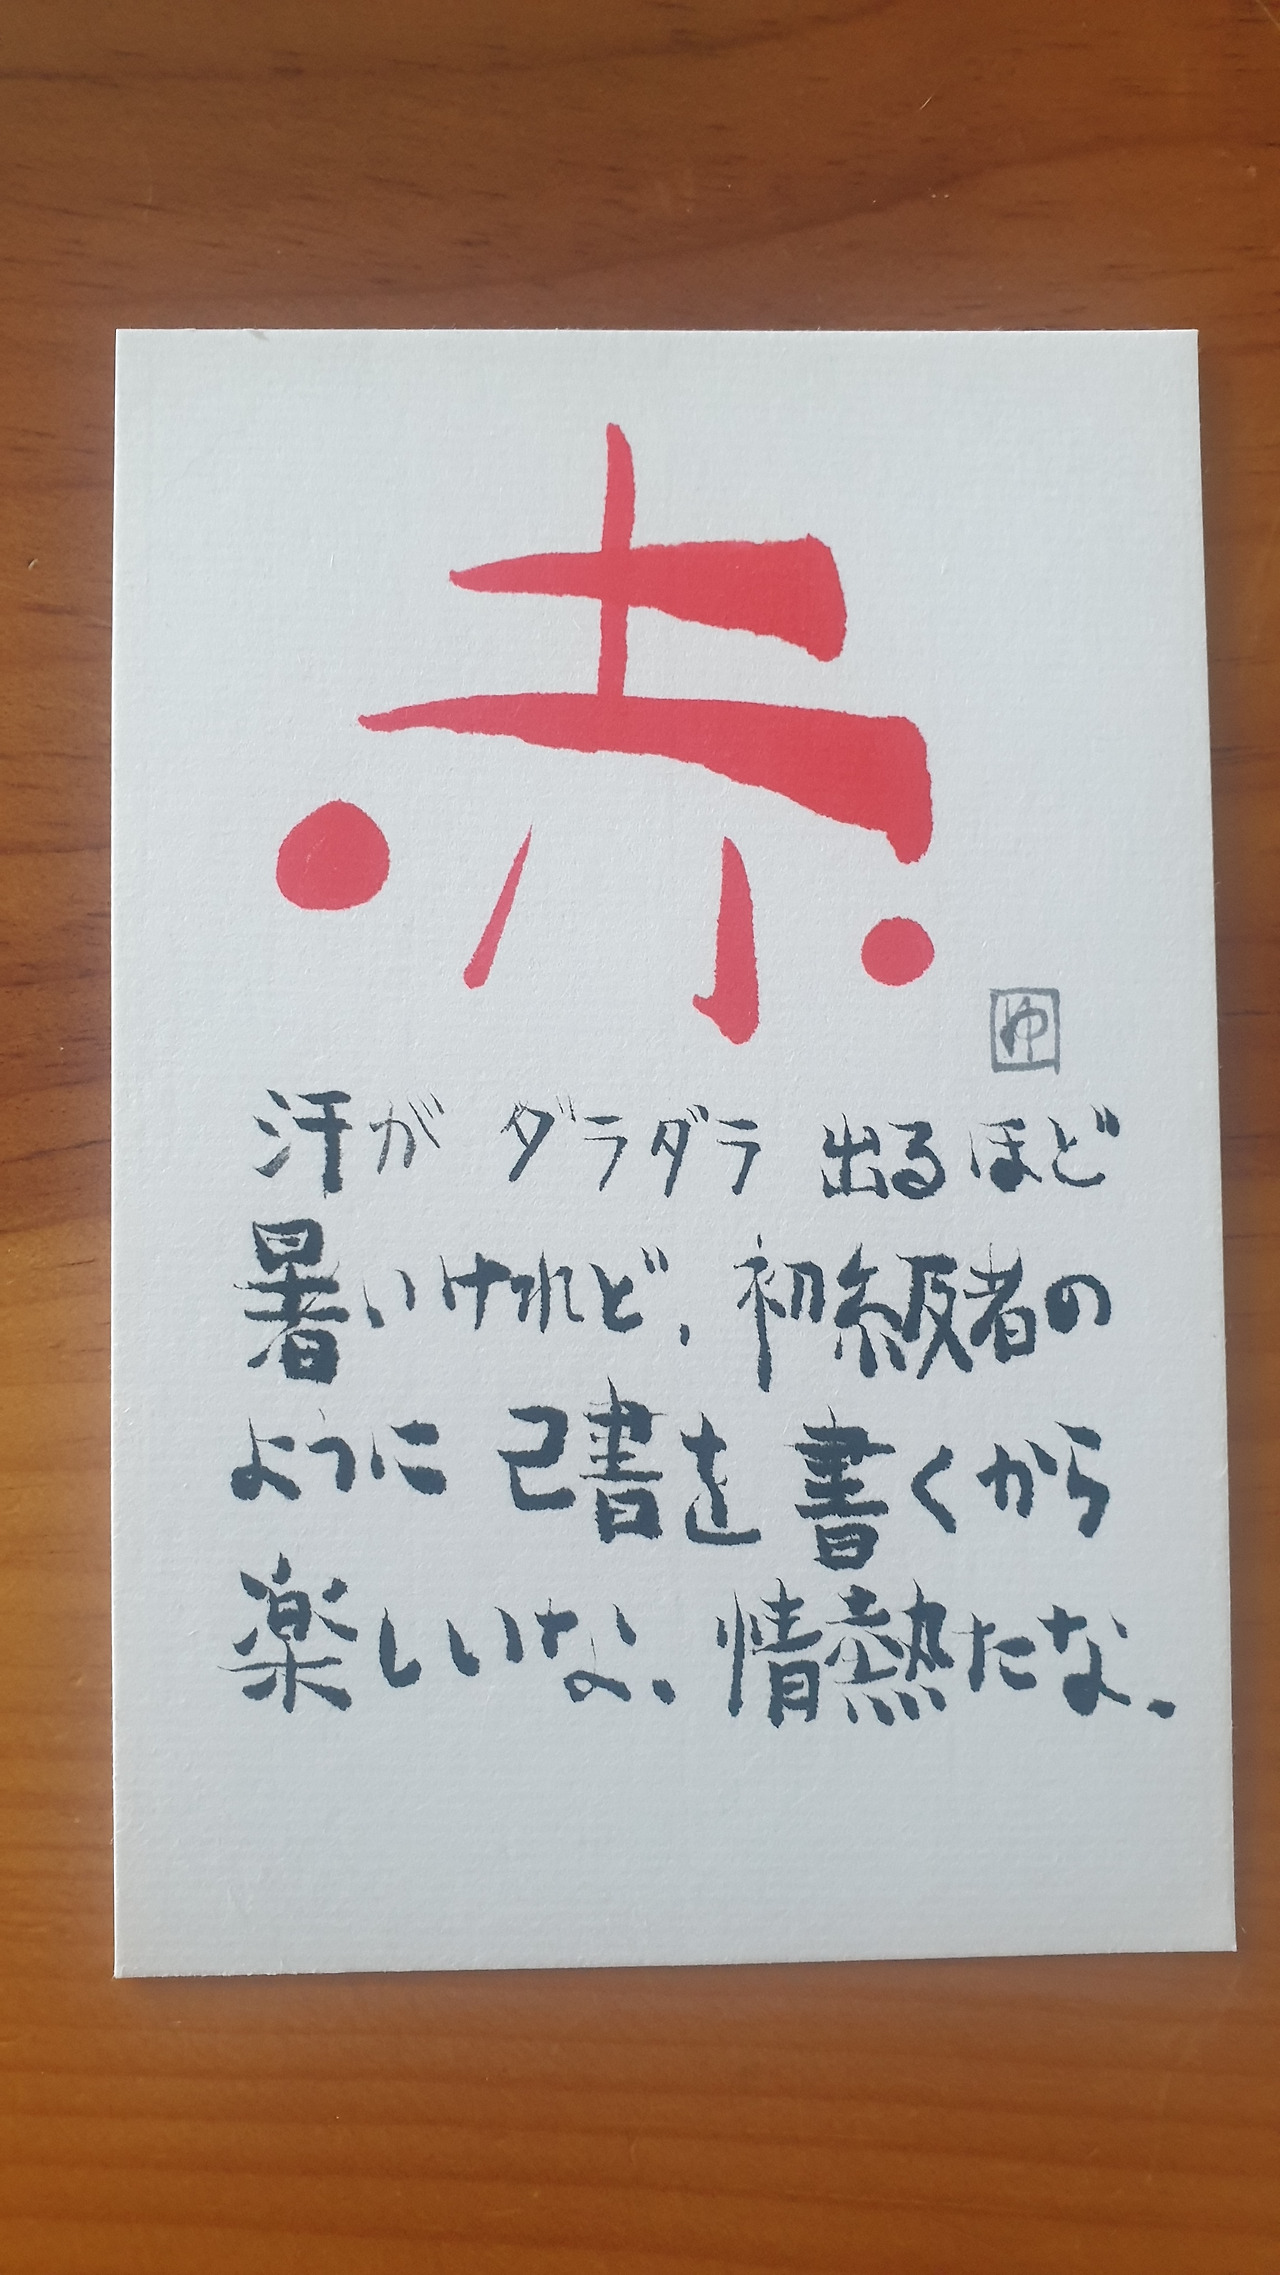 赤
ゆ
汗がダラダラ出るほど
暑いけれど、初級者の
ように己書を書くから
楽しいな。情熱だな。